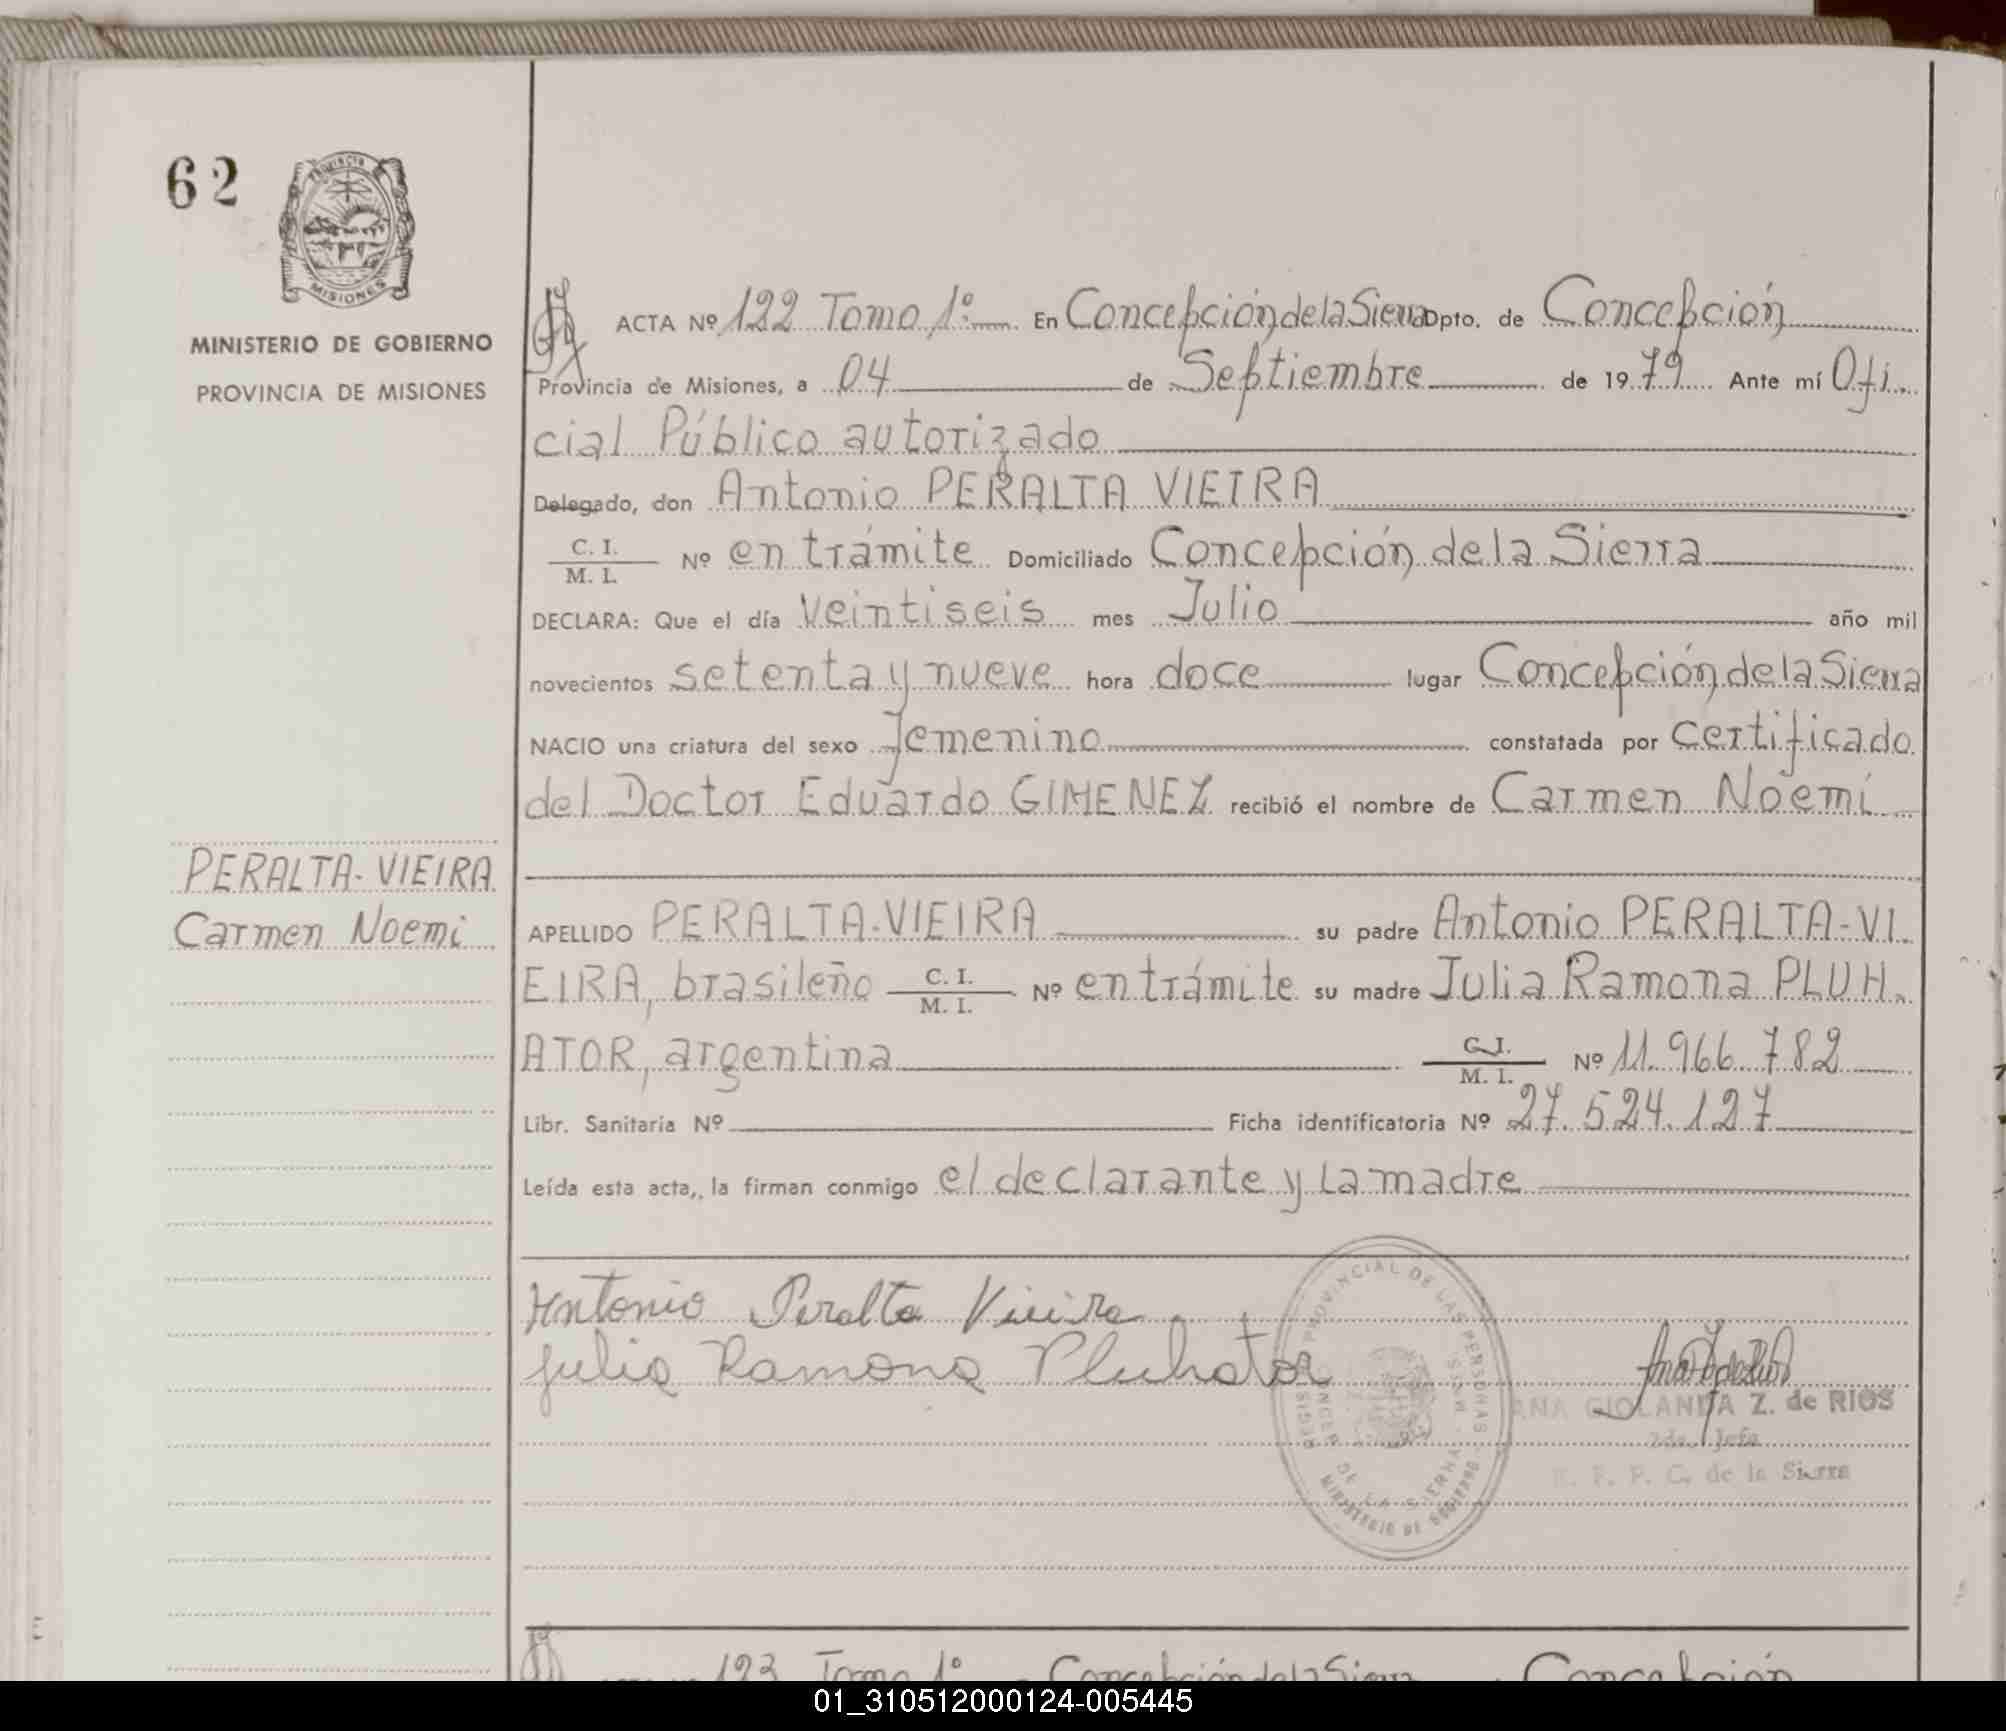 62
PROVINCIA
MISIONES
MINISTERIO DE GOBIERNO
PROVINCIA DE MISIONES
PERALTA-VIEIRA
Carmen Noemi
ACTA Nº 122 Tomo 1º En Concepción de la Sierra Dpto. de Concepción
Provincia de Misiones, a 04 de Septiembre de 1979 Ante mí Ofi
cial Público autorizado
Delegado, don Antonio PERALTA VIEIRA
C. I.
M. I. Nº en trámite Domiciliado Concepción de la Sierra
DECLARA: Que el día veintiseis mes Julio año mil
novecientos setenta y nueve hora doce lugar Concepción de la Sierra
NACIO una criatura del sexo femenino constatada por certificado
del Doctor Eduardo GIMENEZ recibió el nombre de Carmen Noemí
APELLIDO PERALTA-VIEIRA su padre Antonio PERALTA-VI
EIRA, brasileño C. I. M. I. Nº en trámite su madre Julia Ramona PLUH
ATOR, argentina C. I. M. I. Nº 11.966.782
Libr. Sanitaria Nº Ficha identificatoria Nº 27.524.127
Leída esta acta, la firman conmigo el declarante y la madre
Antonio Peralta Vieira
Julia Ramona Pluhator
PROVINCIAL DE LAS PERSONAS
DE LA SIERRA
MINISTERIO DE GOBIERNO
ANA GIOLANDA Z. de RIOS
2da. Jefa
R. P. P. C. de la Sierra
123 Tomo 1º Concepción de la Sierra Concepción
01_310512000124-005445